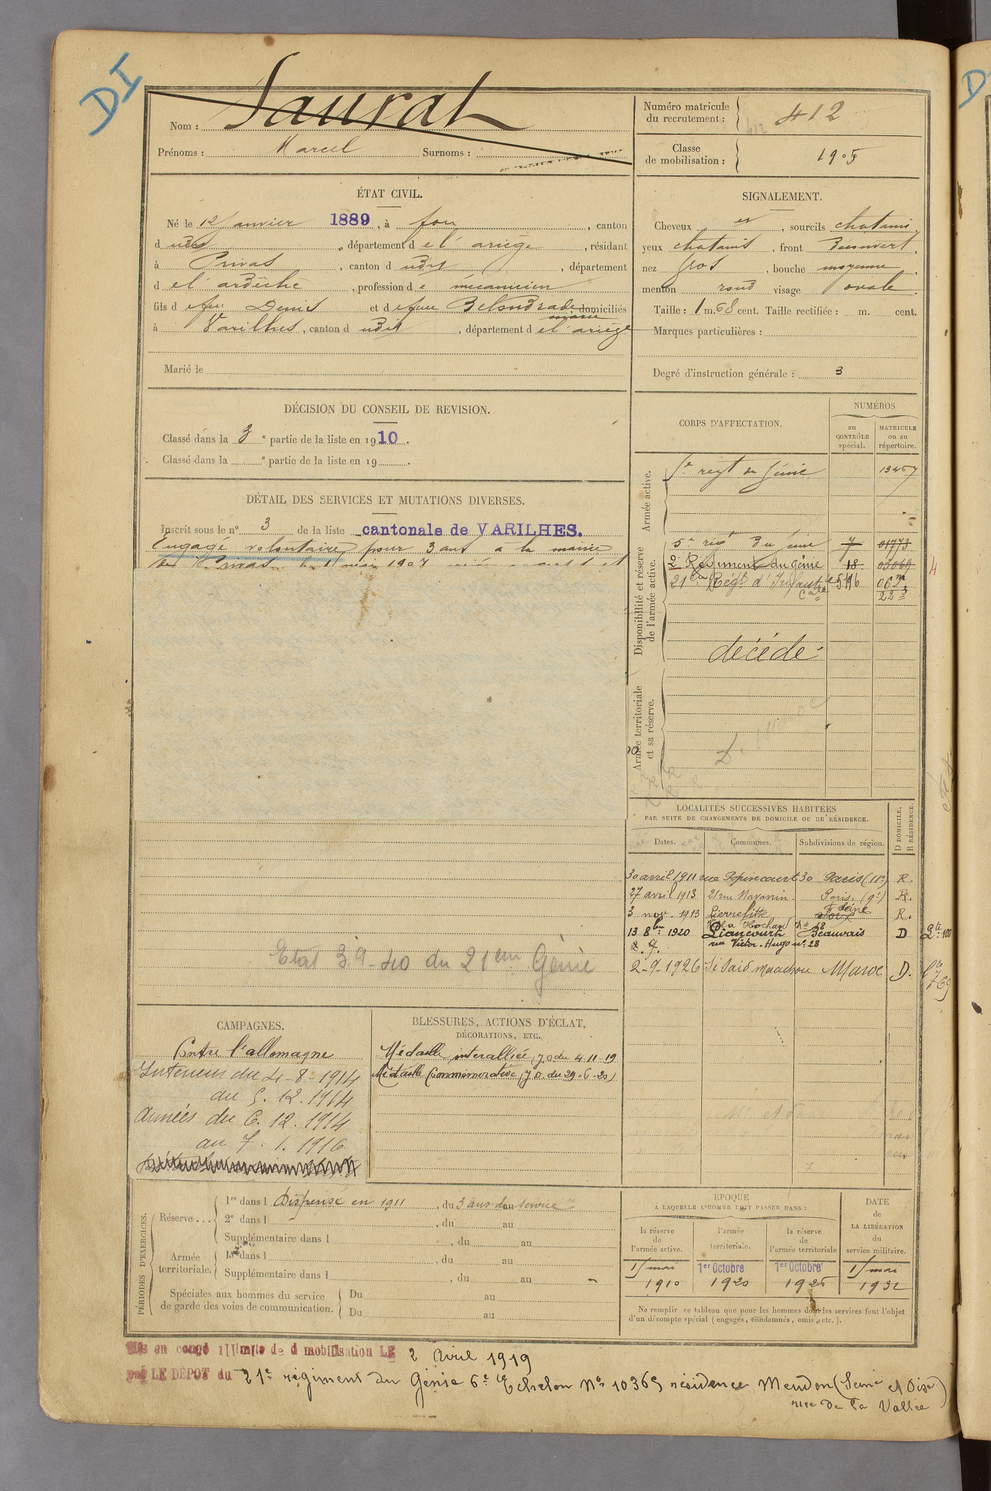 DI
Nom : Saurat
Prénoms : Marcel Surnoms :
Numéro matricule du recrutement : 412
Classe de mobilisation : 1905
ÉTAT CIVIL.
Né le 12 Janvier 1889, à foix, canton
dudit, département de l'ariège, résidant
à Privas, canton dudit, département
de l'ardèche, profession de mécanicien
fils de feu Denis et de feue domiciliés
à Varilhes, canton dudit, département de l'ariège
Marié le
SIGNALEMENT.
Cheveux et, sourcils chatains
yeux chatains, front découvert
nez gros, bouche moyenne
menton rond visage ovale
Taille : 1 m. 68 cent. Taille rectifiée : m. cent.
Marques particulières :
Degré d'instruction générale : 3
DÉCISION DU CONSEIL DE REVISION.
Classé dans la 3e partie de la liste en 1910.
Classé dans la e partie de la liste en 19 .
DÉTAIL DES SERVICES ET MUTATIONS DIVERSES.
Inscrit sous le n° 3 de la liste cantonale de VARILHES.
Engagé volontaire pour 3 ans à la mairie
Privas le 1 mai 1907
Etat 39-40 du 21ème Génie
CORPS D'AFFECTATION.
NUMÉROS
au CONTRÔLE spécial.
MATRICULE ou au répertoire.
Armée active.
5e regt du Génie 13457
Disponibilité et réserve de l'armée active.
5e regt du génie 7 01773
2e Régiment du génie 18 03069
21e Regt d'Infant
décédé
Armée territoriale et sa réserve.
LOCALITÉS SUCCESSIVES HABITÉES
PAR SUITE DE CHANGEMENTS DE DOMICILE OU DE RÉSIDENCE.
Dates. Communes. Subdivisions de région. D DOMICILE. R RÉSIDENCE.
30 avril 1911 rue Popincourt 30 Paris (11e) R.
27 avril 1913 21 rue Navarin Paris (9e) R.
3 nov. 1913 Pierrefitte Seine R.
13 8bre 1920 Liancourt Beauvais D
rue Victor-Hugo n° 28
2-9-1926 Si Said Maachou Maroc D.
CAMPAGNES.
Contre l'allemagne
Intérieur du 4-8-1914
au 5.12.1914
Armées du 6.12.1914
au 7.1.1916
BLESSURES, ACTIONS D'ÉCLAT,
DÉCORATIONS, ETC.
Médaille interalliée J.O du 4-11-19
Médaille Commémorative (J.O. du 29-6-20)
PÉRIODES D'EXERCICES.
Réserve....
1re dans l Dispensé en 1911, du 3 ans de au service
2e dans l , du au
Supplémentaire dans l , du au
Armée territoriale.
1re dans l , du au
Supplémentaire dans l , du au
Spéciales aux hommes du service de garde des voies de communication.
Du au
Du au
ÉPOQUE
À LAQUELLE L'HOMME DOIT PASSER DANS :
la réserve de l'armée active.
l'armée territoriale.
la réserve de l'armée territoriale
DATE de LA LIBÉRATION du service militaire.
1er mai 1910
1er Octobre 1920
1er Octobre 1926
1er mai 1932
Ne remplir ce tableau que pour les hommes dont les services font l'objet
d'un décompte spécial (engagés, condamnés, omis, etc.).
Mis en congé illimité de démobilisation LE 2 Avril 1919
par LE DÉPOT du 21e régiment du Génie 6e Echelon N° 10365 résidence Meudon (Seine et Oise)
rue de la Vallée